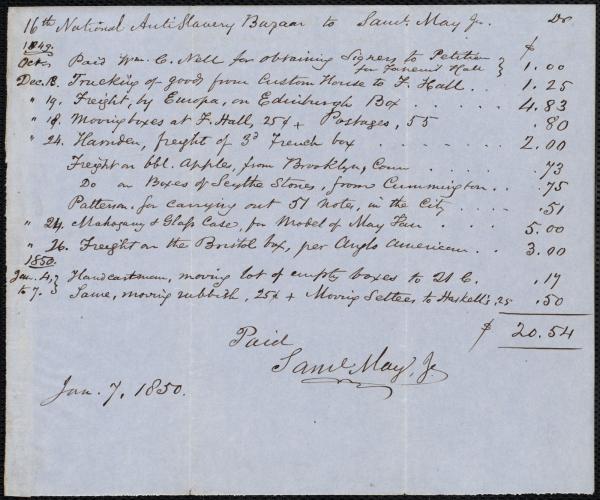 16th National AntiSlavery Bazaar to Saml. May Jr. Dr.
1849. $
Oct. Paid Wm. C. Nell for obtaining Signers to Petition for Faneuil Hall } 1.00
Dec. 18. Trucking of good from Custom House to F. Hall . . 1.25
" 19. Freight, by Europa, on Edinburgh Box . . . . . 4.83
" 18. Moving boxes at F. Hall, 25¢ + Postages, 55 .80
" 24. Harnden, freight of 3d French box . . . . . . 2.00
Freight on bbl. Apples, from Brooklyn, Conn . . . .73
Do on Boxes of Scythe Stones, from Cummington . . .75
Patterson, for carrying out 51 notes, in the City . . .51
" 24. Mahogany & Glass Case, for Model of May Fair . . . 5.00
" 26. Freight on the Bristol box, per Anglo American . . 3.00
1850.
Jan. 4, } Handcartman, moving lot of empty boxes to 21 C. .17
to 7. } Same, moving rubbish, 25¢ + Moving Settees to Haskell's, 25 .50
$ 20.54
Paid
Saml May, Jr
Jan. 7, 1850.